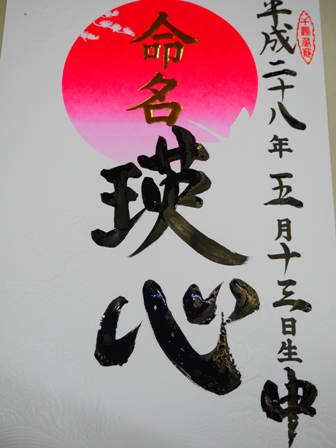 平成二十八年五月十三日生申
命名
瑛心